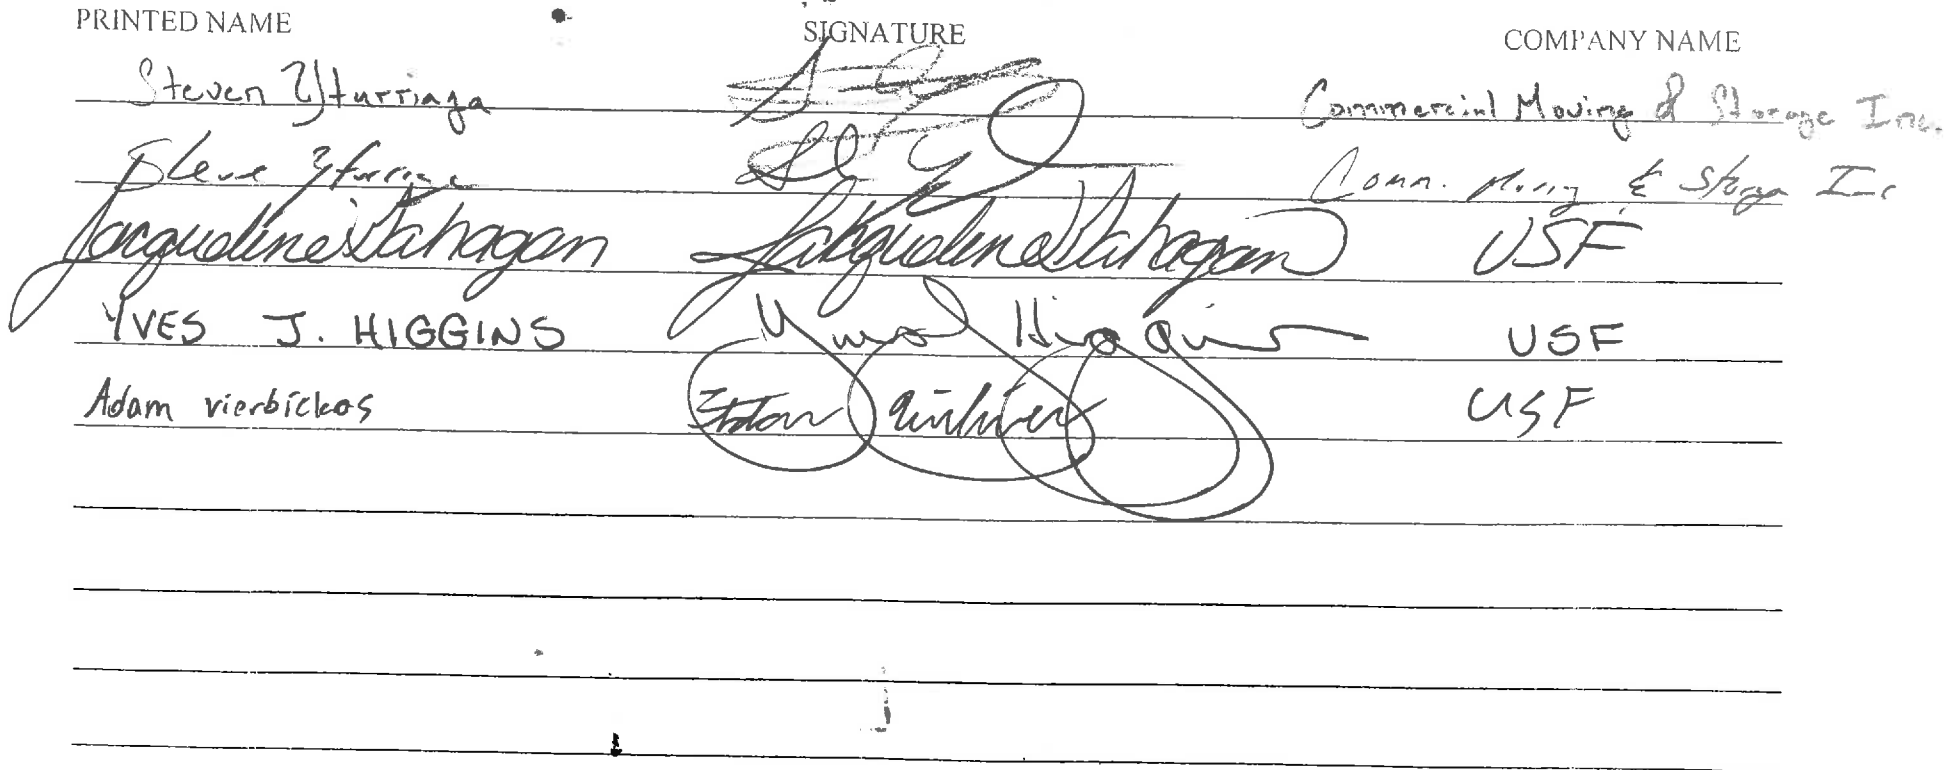 PRINTED NAME SIGNATURE COMPANY NAME
Steven Yturriaga Commercial Moving & Storage Inc.
Steve Yturriaga Comm. Moving & Storage Inc
Jacqueline Dahagan Jacqueline Dahagan USF
YVES J. HIGGINS Higgins USF
Adam vierbickas USF